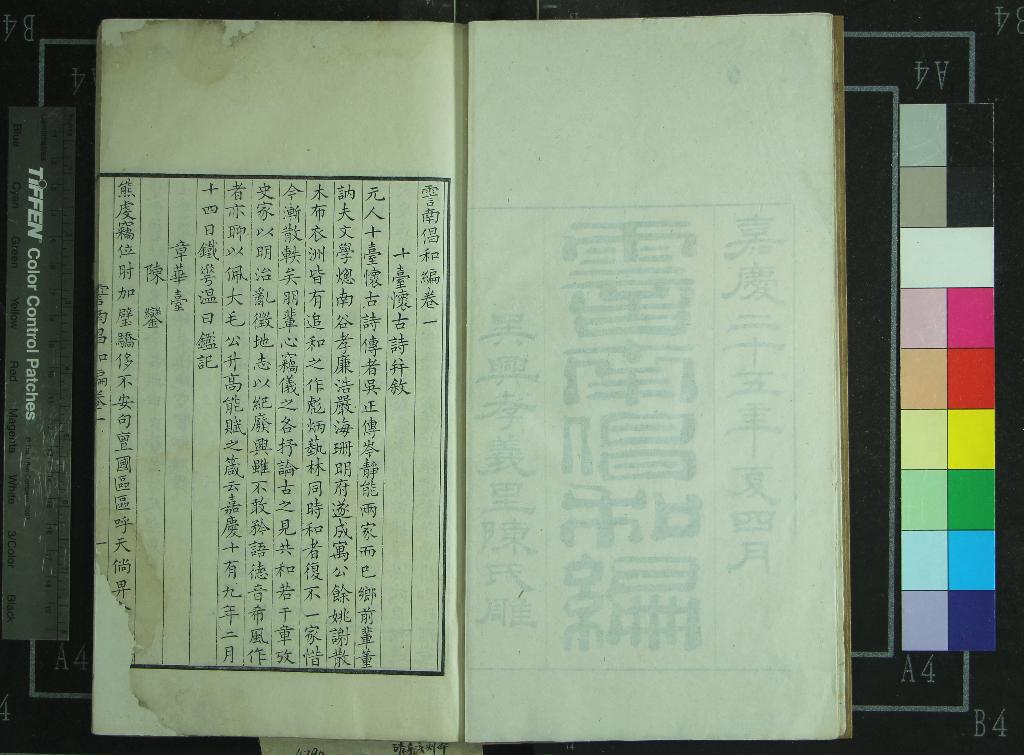 嘉慶二十五年夏四月
霅南倡和編
吳興孝義里陳氏雕
霅南倡和編卷一
十臺懷古詩并敘
元人十臺懷古詩傳者吳正傳岑靜能兩家而已鄉前輩董
訥夫文學熜南谷孝廉浩嚴海珊明府遂成寓公餘姚謝散
木布衣洲皆有追和之作彪炳藝林同時和者復不一家惜
今漸散軼矣朋輩心竊儀之各抒論古之見共和若干章攷
史家以明治亂徵地志以紀廢興雖不敢矜語德音希風作
者亦聊以佩大毛公升高能賦之箴云嘉慶十有九年二月
十四日鐵溫日鑑記
章華臺
陳鑾
熊虔竊位肘加璧驕侈不安句亶國區區呼天倘畀
霅南倡和編卷一
一
TIFFEN Color Control Patches
Blue Cyan Green Yellow Red Magenta White 3/Color Black
A4
B4